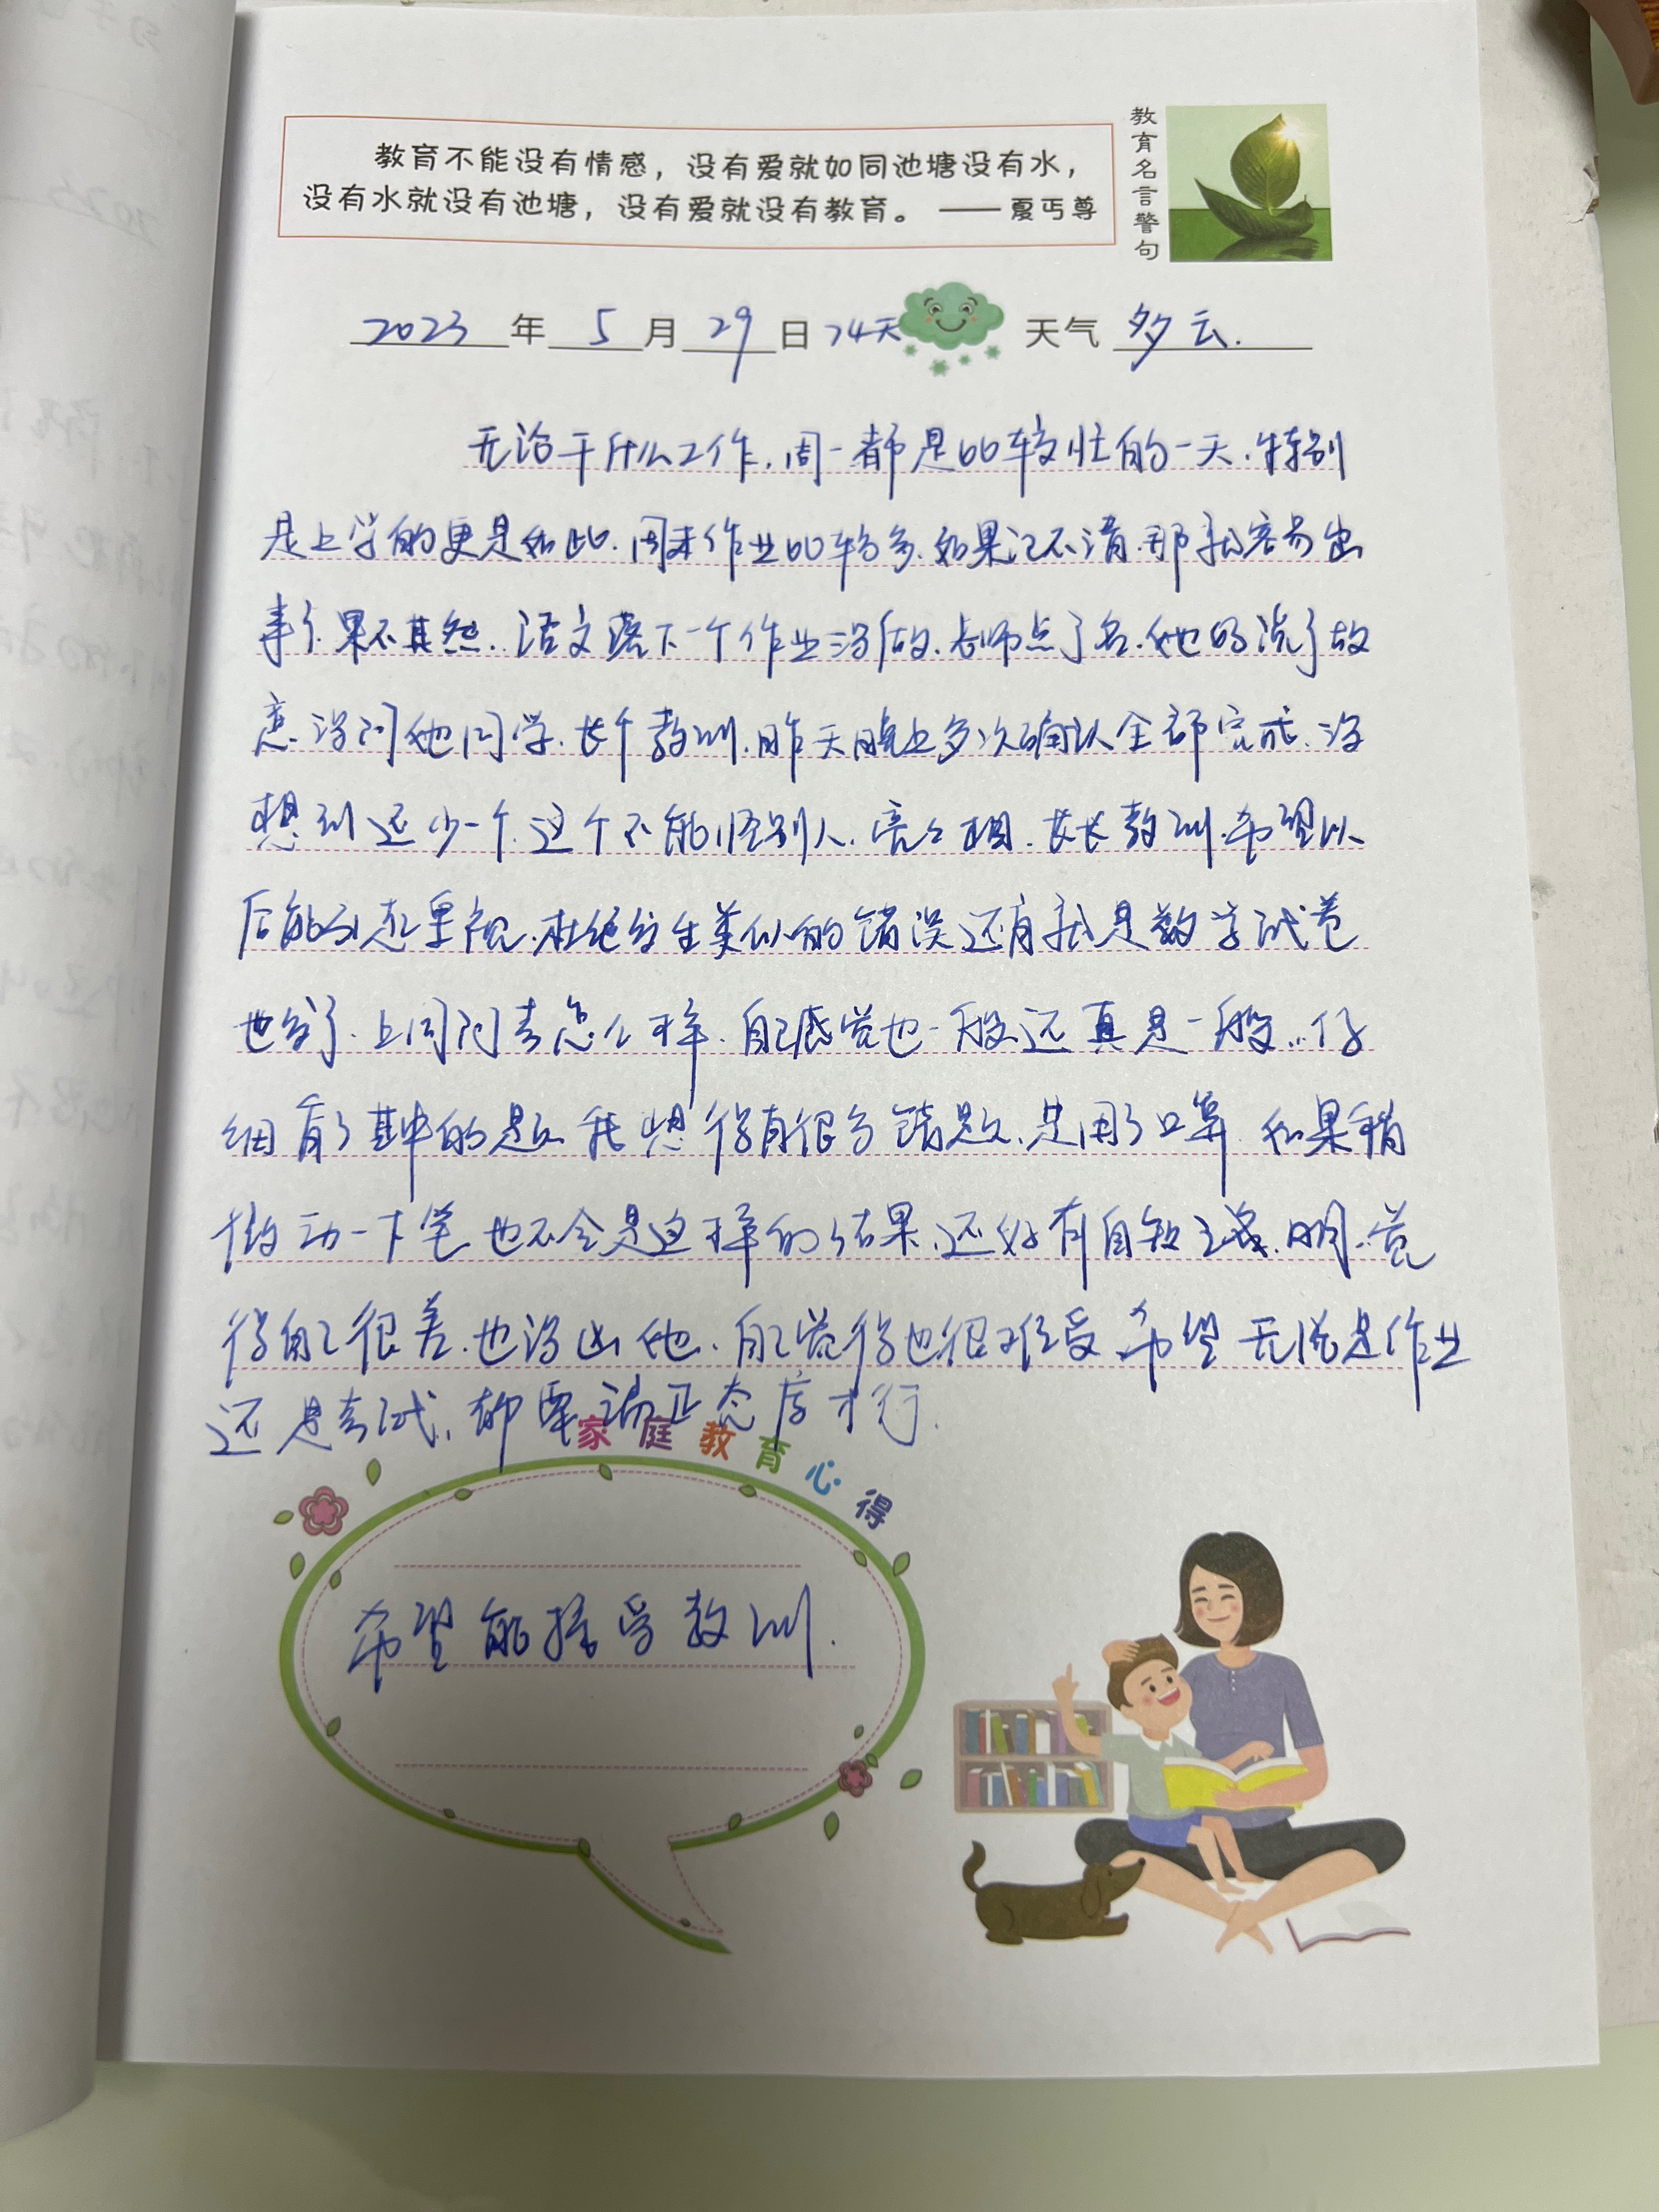 教育不能没有情感，没有爱就如同池塘没有水，
没有水就没有池塘，没有爱就没有教育。 —— 夏丏尊
教育名言警句
2023 年 5 月 29 日 74天 天气 多云.
无论干什么工作.周一都是比较忙的一天.特别
是上学的更是如此.周末作业比较多.如果记不清.那就容易出
事了.果不其然..语文落下一个作业没做.老师点了名.他的说了故
意没问他同学.长个教训.昨天晚上多次确认全部完成.没
想到还少一个.这个不能怪别人.亮亮相.长长教训.希望以
后能引起重视.杜绝发生类似的错误还有就是数学试卷
也发了.上周问考怎么样.自己感觉也一般还真是一般...仔
细看了其中的题.我想得有很多错题.是用了口算.如果稍
微动一下笔也不会是这样的结果.还好有自知之明.觉
得自己很差.也没凶他.自己觉得也很难受.希望无论是作业
还是考试.都要端正态度才行.
家庭教育心得
希望能接受教训.